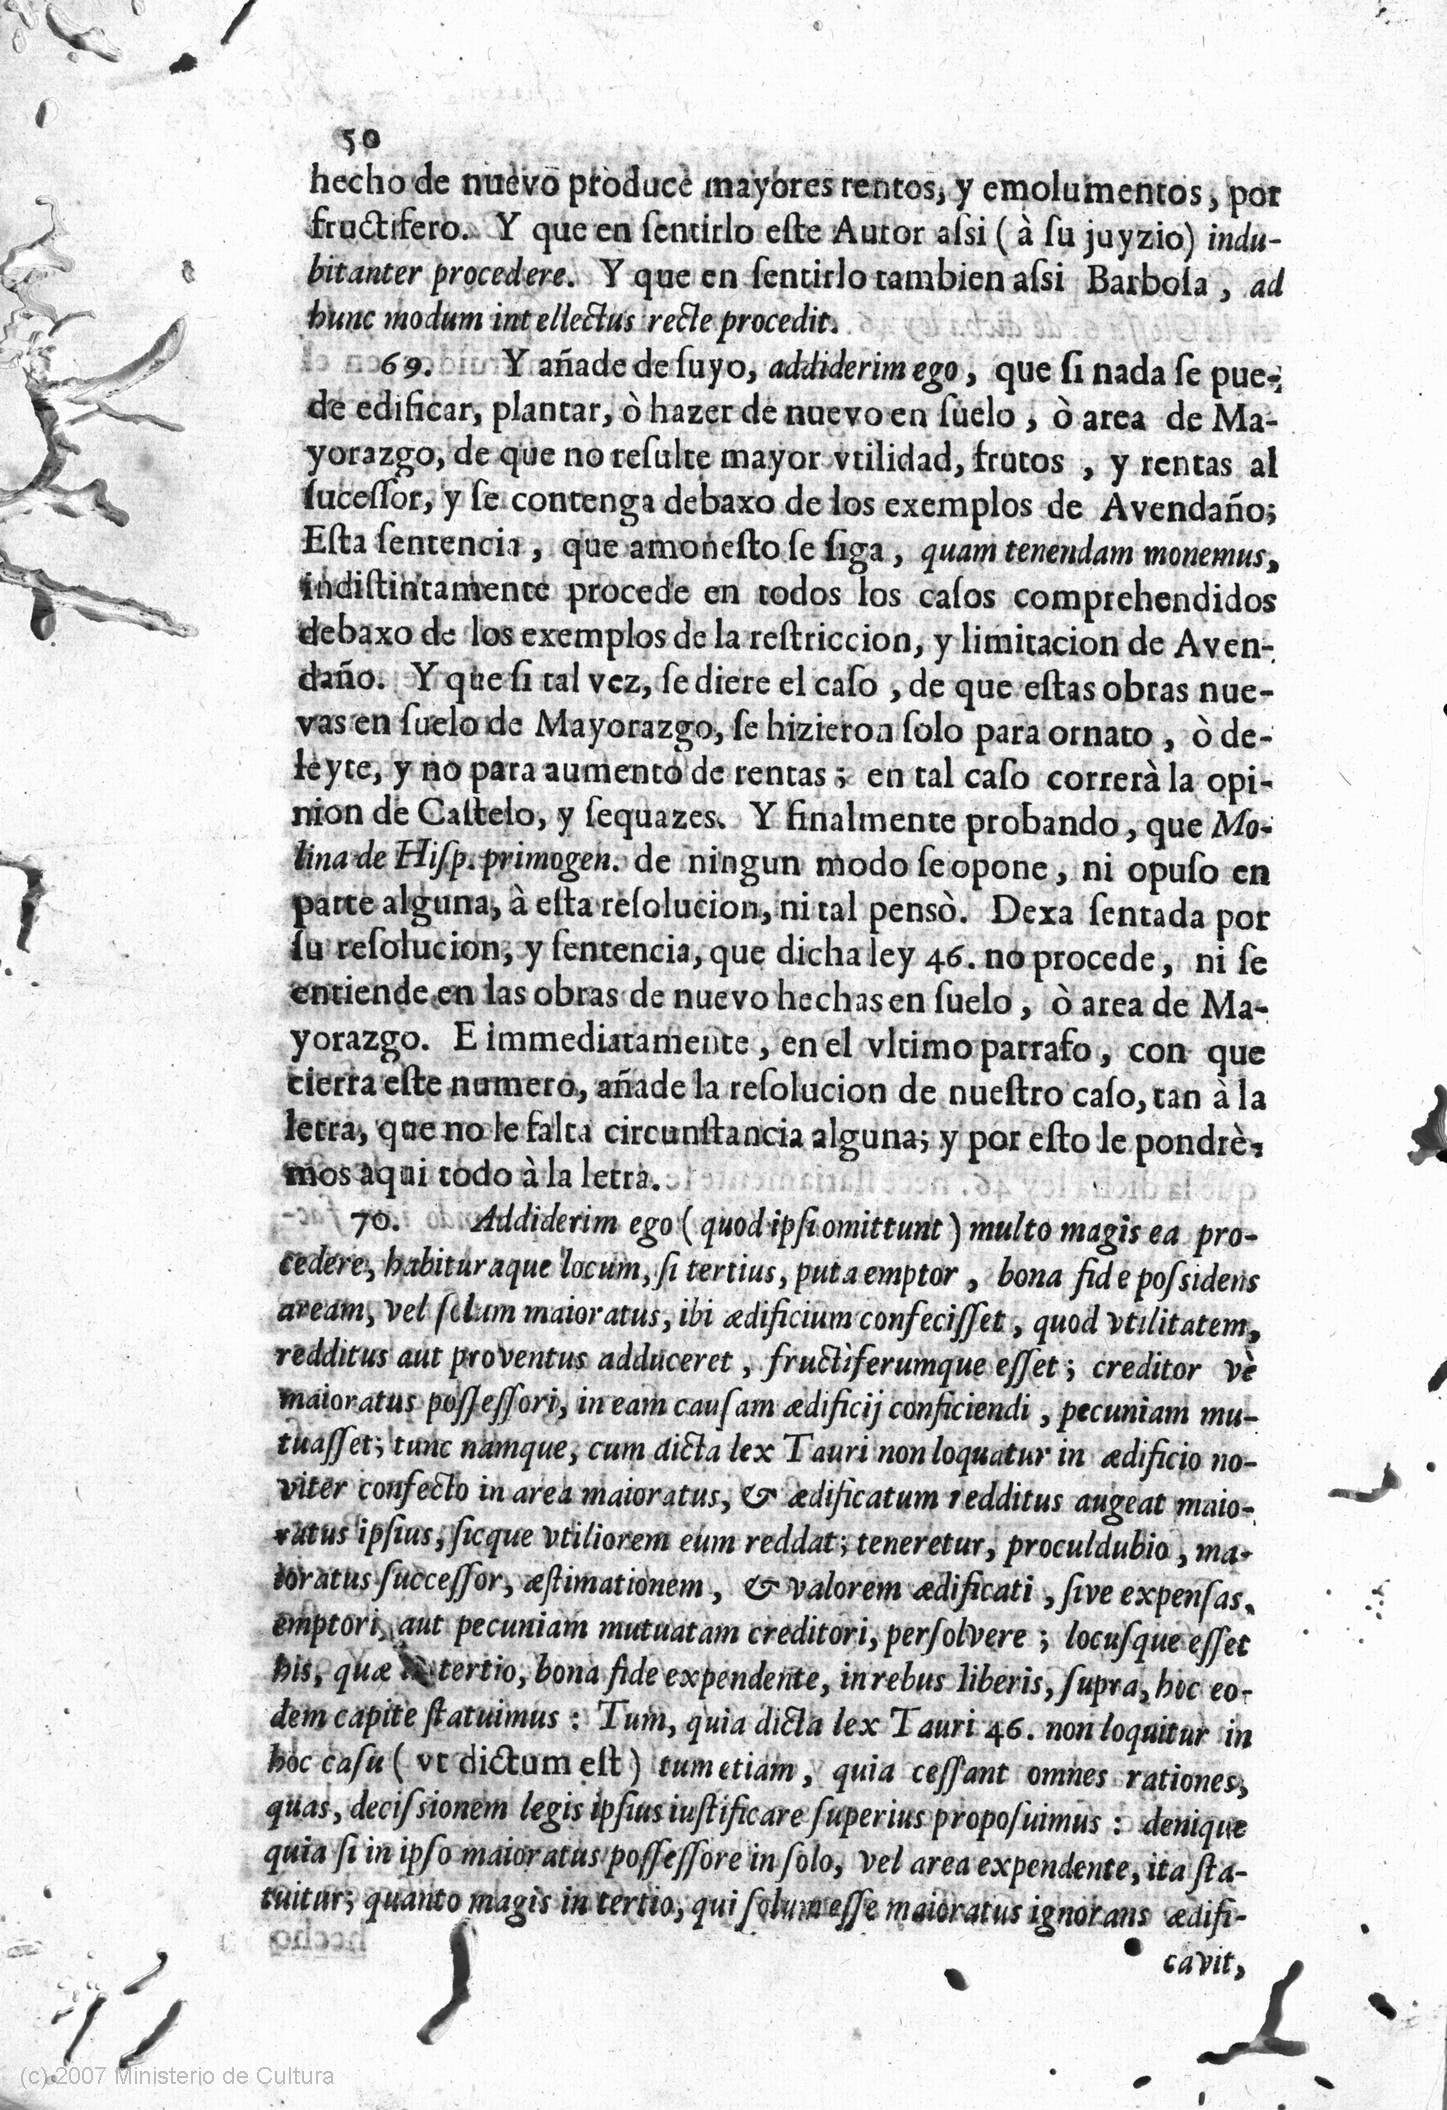 50
hecho de nuevo produce mayores rentos, y emolumentos, por
fructifero. Y que en ſentirlo eſte Autor aſsi ( à ſu juyzio) indu-
bitanter procedere. Y que en ſentirlo tambien aſsi Barboſa, ad
hunc modum intellectus recte procedit.
69. Y añade de ſuyo, addiderim ego, que ſi nada ſe pue-
de edificar, plantar, ò hazer de nuevo en ſuelo, ò area de Ma-
yorazgo, de que no reſulte mayor vtilidad, frutos, y rentas al
ſuceſſor, y ſe contenga debaxo de los exemplos de Avendaño;
Eſta ſentencia, que amoneſto ſe ſiga, quam tenendam monemus,
indiſtintamente procede en todos los caſos comprehendidos
debaxo de los exemplos de la reſtriccion, y limitacion de Aven-
daño. Y que ſi tal vez, ſe diere el caſo, de que eſtas obras nue-
vas en ſuelo de Mayorazgo, ſe hizieron ſolo para ornato, ò de-
leyte, y no para aumento de rentas; en tal caſo correrà la opi-
nion de Caſtelo, y ſequazes. Y finalmente probando, que Mo-
lina de Hiſp. primogen. de ningun modo ſe opone, ni opuſo en
parte alguna, à eſta reſolucion, ni tal pensò. Dexa ſentada por
ſu reſolucion, y ſentencia, que dicha ley 46. no procede, ni ſe
entiende en las obras de nuevo hechas en ſuelo, ò area de Ma-
yorazgo. E immediatamente, en el vltimo parrafo, con que
cierra eſte numero, añade la reſolucion de nueſtro caſo, tan à la
letra, que no le falta circunſtancia alguna; y por eſto le pondrè-
mos aqui todo à la letra.
70. Addiderim ego ( quod ipſi omittunt ) multo magis ea pro-
cedere, habituraque locum, ſi tertius, puta emptor, bona fide poſsidens
aream, vel ſolum maioratus, ibi ædificium confeciſſet, quod vtilitatem,
redditus aut proventus adduceret, fructiferumque eſſet; creditor vè
maioratus poſſeſſori, in eam cauſam ædificij conficiendi, pecuniam mu-
tuaſſet; tunc namque, cum dicta lex Tauri non loquatur in ædificio no-
viter confecto in area maioratus, & ædificatum redditus augeat maio-
ratus ipſius, ſicque vtiliorem eum reddat; teneretur, proculdubio, ma-
ioratus ſucceſſor, æſtimationem, & valorem ædificati, ſive expenſas,
emptori, aut pecuniam mutuatam creditori, perſolvere; locuſque eſſet
his, quæ tertio, bona fide expendente, in rebus liberis, ſupra, hoc eo-
dem capite ſtatuimus: Tum, quia dicta lex Tauri 46. non loquitur in
hoc caſu ( vt dictum eſt ) tum etiam, quia ceſſant omnes rationes,
quas, deciſsionem legis ipſius iuſtificare ſuperius propoſuimus: denique
quia ſi in ipſo maioratus poſſeſſore in ſolo, vel area expendente, ita ſta-
tuitur; quanto magis in tertio, qui ſolum eſſe maioratus ignorans ædifi-
cavit,
(c) 2007 Ministerio de Cultura